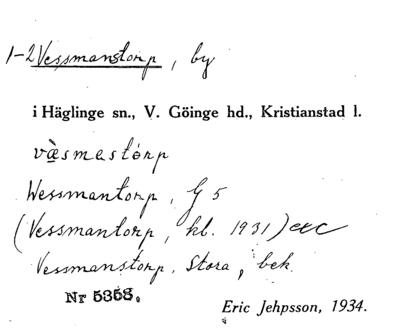 1-2 Vessmanstorp, by
i Häglinge sn., V. Göinge hd., Kristianstad l.
væ̀smastórp
Wessmantorp, G 5
(Vessmantorp, kl. 1931) ecc
Vessmanstorp, Stora, bek.
Nr 5353.
Eric Jehpsson, 1934.